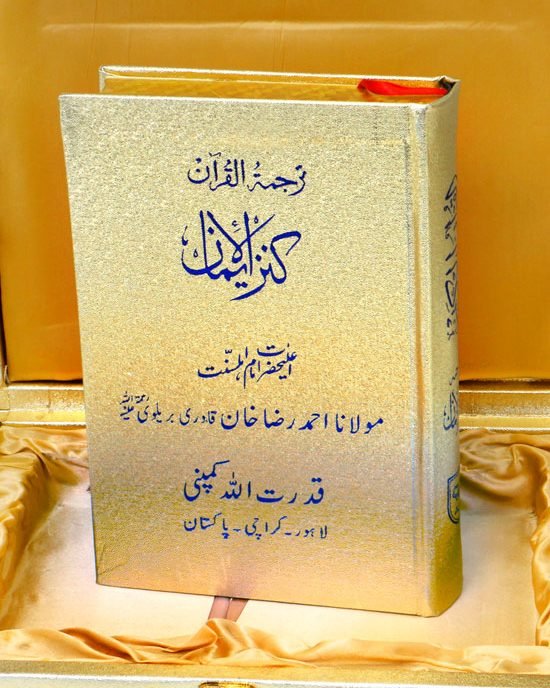 ترجمۃ القرآن
کنز الایمان
اعلیٰحضرت امام اہلسنّت
مولانا احمد رضا خان قادری بریلوی رحمۃ اللہ علیہ
قدرت اللہ کمپنی
لاہور۔ کراچی۔ پاکستان